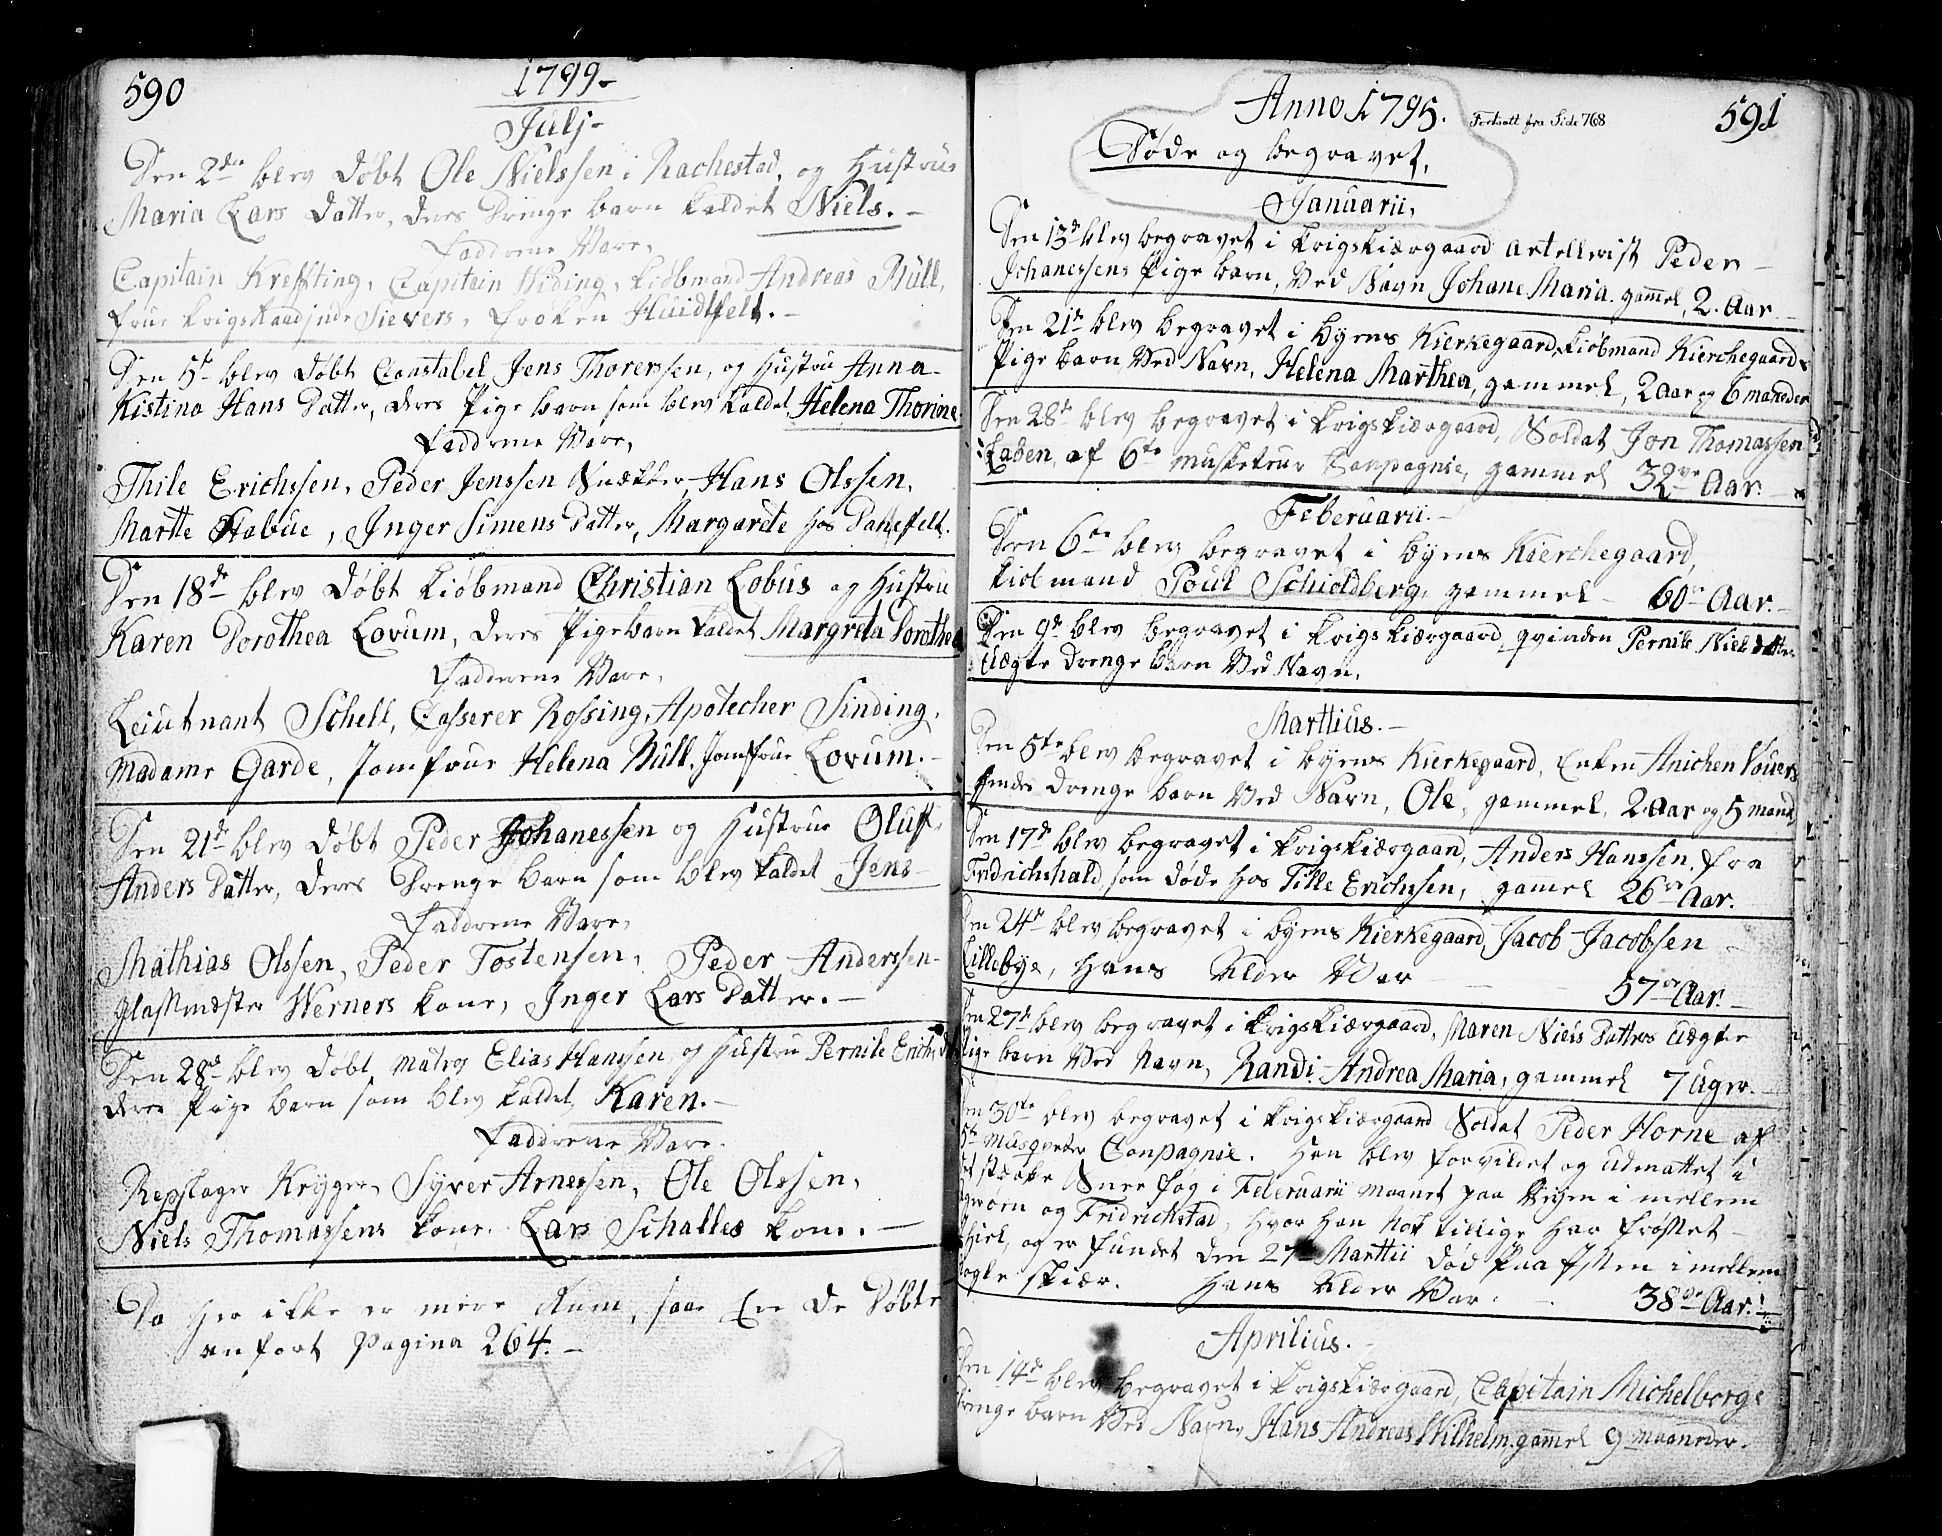 590
1799-
Julj-
Den 2den blev Døbt Ole Nielssen i Rachestad, og Hustrue
Maria Lars Datter, deres Drenge barn kaldet Niels.-
Faddrene Vare,
Capitain Kreffting, Capitain Widing, kiøbmand Andreas Büll,
frue Sievers, frøken Huidtfelt.-
Den 5te blev Døbt Constabel Jens Thorerssen, og Hustru Anna-
Kistina Hans Datter, deres Pige barn som blev kaldet Helena Thorine.
Faddrene Vare,
Thile Erichssen, Peder Jenssen Snækker, Hans Olssen,
Marte Habue, Inger Simens Datter, Margarete hos
Den 18de blev Døbt kiøbmand Christian Lobus og Hustru
Karen Dorothea Lorum, deres Pigebarn kaldet Margreta Dorothea
Faddrene Vare,
Leiutnant Schell, Casserer Rossing, Apotecher Sinding,
Madame Garde, Jomfrue Helena Büll, Jomfrue Lorum.-
Den 21de blev Døbt Peder Johanessen og Hustrue Oluf
Anders Datter, deres Drenge barn som blev kaldet Jens-
Faddrene Vare,
Mathias Olssen, Peder Tostensen, Peder Anderssen-
Glassmæster Werners kone, Inger Lars Datter.-
Den 28de blev Døbt Matros Elias Hanssen, og Hustru Pernile Erichs
deres Pige barn som blev kaldet Karen.-
Faddrene Vare.
Repslager Krÿger, Syver Arnessen, Ole Olssen,
Niels Thomassens kone. Lars Schalles kone.-
Da her ikke er mere Rum, saa Ere de Døbte
anført Pagina 264.-
Anno 1795. Fortsatt fra Side 768
591
Døde og begravet,
Januarii,
Den 13de blev begravet i krigskiærgaard artellerist Peder-
Johanessens Pige barn, Ved Navn Johane Maria. gammel, 2. Aar-
Den 21de blev begravet i byens Kierkegaard, kiøbmand Kierchegaards
Pige barn Ved Navn, Helena Marthea, gammel, 2 Aar og 6 maaneder
Den 28de blev begravet i krigskiærgaard, Soldat Jon Thomassen
Laden, af 6te Musketeur Companie, gammel 32ve Aar.
Feberuarii.-
Den 6te blev begravet i byens Kierchegaard,
kiøbmand Poul Schioldberg, gammel- 60 Aar.-
Den 9de blev begravet i krigskiærgaard, qvinden Pernile Niels datters
Uægte Drenge barn Ved Navn,
Marttius.-
Den 5te blev begravet i byens Kierkegaard, Enken Anichen
Drenge barn Ved Navn, Ole, gammel, 2 Aar og 5 maand
Den 17de blev begravet i krigskiærgaard, Anders Hanssen, fra
Fridrichshald, som døde hos Tille Erichssen, gamel 26 Aar.
Den 24de blev begravet i byens Kierkegaard, Jacob Jacobsen-
Lillebye, Hans Alder Var - - 57 Aar.-
Den 27de blev begravet i krigskiærgaard, Maren Niels Datters Uægte
Pige barn Ved Navn, Randi Andrea Maria, gammel 7 Uger.-
Den 30te blev begravet i krigskiærgaard Soldat Peder Horne af
5te Musqveter Conpagnie. Han blev forvildet og Udmattet i
et stærke Snee fog i Feleruarii maanet paa Veyen i mellem
og Fridrichstad, hvor han Nok tillige har frøsset-
ihiel, og er fundet den 27 Marttii død paa Issen i mellem
skiær. Hans Alder Var. - 38de Aar.
Aprilius.-
Den 14de blev begravet i krigskiærgaard, Capitain Michelborgs
Drenge barn Ved Navn, Hans Andreas Wilhelm. gammel 9 maaneder.